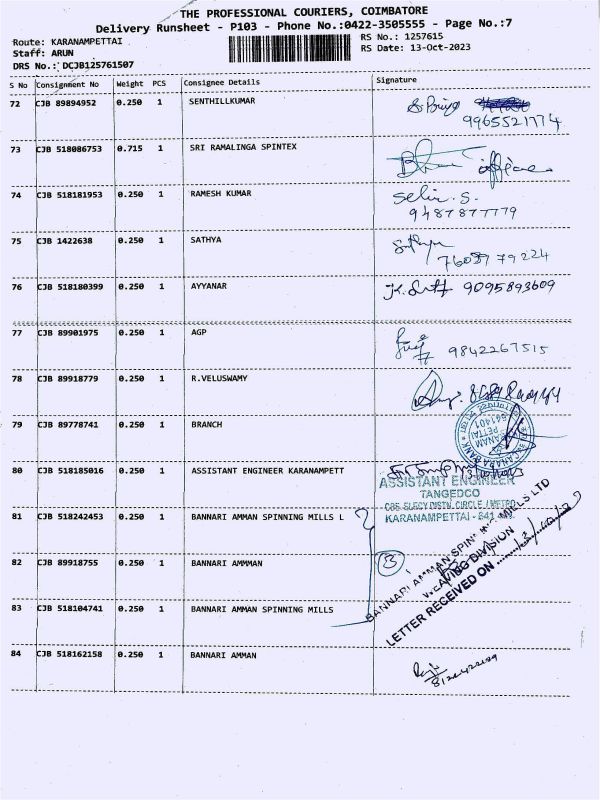 THE PROFESSIONAL COURIERS, COIMBATORE
Delivery Runsheet - P103 - Phone No.:0422-3505555 - Page No.:7
Route: KARANAMPETTAI
RS No.: 1257615
Staff: ARUN
RS Date: 13-Oct-2023
DRS No.: DCJB125761507
S No Consignment No Weight PCS Consignee Details Signature
72 CJB 89894952 0.250 1 SENTHILLKUMAR
9965521774
73 CJB 518086753 0.715 1 SRI RAMALINGA SPINTEX
office
74 CJB 518181953 0.250 1 RAMESH KUMAR
Selvi. S.
9487877779
75 CJB 1422638 0.250 1 SATHYA
Sathya
76 CJB 518180399 0.250 1 AYYANAR
9095893609
77 CJB 89901975 0.250 1 AGP
9842267515
78 CJB 89918779 0.250 1 R.VELUSWAMY
79 CJB 89778741 0.250 1 BRANCH
80 CJB 518185016 0.250 1 ASSISTANT ENGINEER KARANAMPETT
ASSISTANT ENGINEER
TANGEDCO
CBE ELECY DISTN. CIRCLE / METRO
KARANAMPETTAI - 641
81 CJB 518242453 0.250 1 BANNARI AMMAN SPINNING MILLS L
82 CJB 89918755 0.250 1 BANNARI AMMMAN
3
BANNARI AMMAN SPINNING MILLS LTD
WEAVING DIVISION
LETTER RECEIVED ON
83 CJB 518104741 0.250 1 BANNARI AMMAN SPINNING MILLS
84 CJB 518162158 0.250 1 BANNARI AMMAN